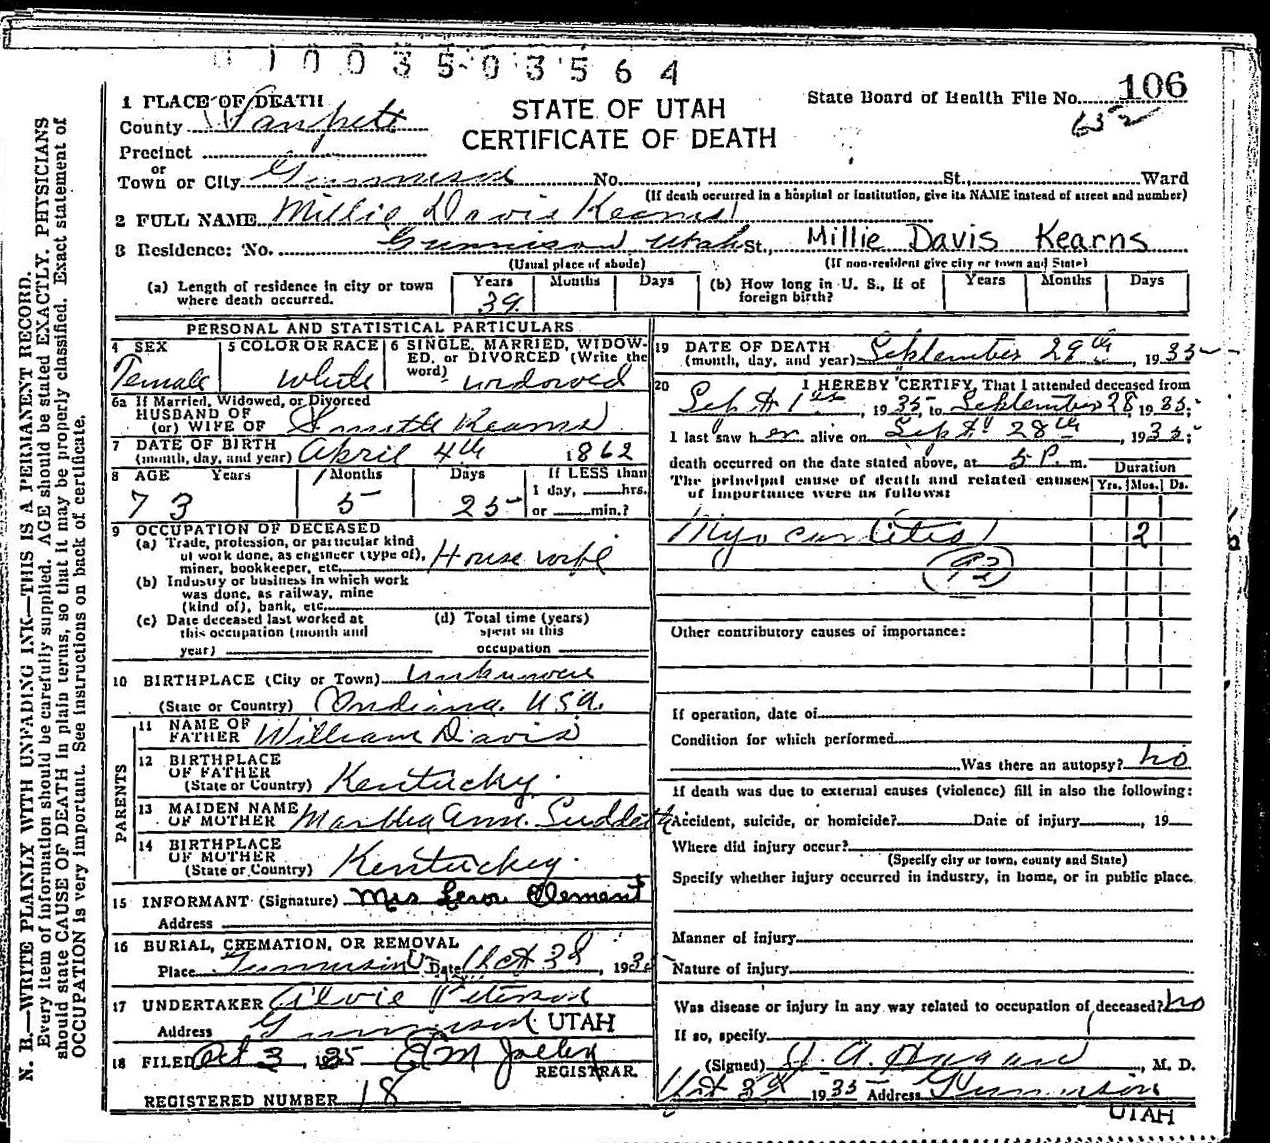 1 0 0 3 5 0 3 5 6 4
106
652
STATE OF UTAH
CERTIFICATE OF DEATH
State Board of Health File No.
1 PLACE OF DEATH
County Sanpete
Precinct
or
Town or City Gunnison No. , St., Ward
(If death occurred in a hospital or institution, give its NAME instead of street and number)
2 FULL NAME Millie Davis Kearns
3 Residence: No. Gunnison Utah St., Millie Davis Kearns
(Usual place of abode) (If non-resident give city or town and State)
(a) Length of residence in city or town where death occurred. Years 39 Months Days
(b) How long in U. S., if of foreign birth? Years Months Days
PERSONAL AND STATISTICAL PARTICULARS
4 SEX Female
5 COLOR OR RACE White
6 SINGLE, MARRIED, WIDOWED, or DIVORCED (Write the word) widowed
6a If Married, Widowed, or Divorced
HUSBAND OF
(or) WIFE OF Kearns
7 DATE OF BIRTH
(month, day, and year) April 4th 1862
8 AGE Years 73 Months 5 Days 25 If LESS than
1 day, hrs.
or min.?
9 OCCUPATION OF DECEASED
(a) Trade, profession, or particular kind
of work done, as engineer (type of),
miner, bookkeeper, etc. House wife
(b) Industry or business in which work
was done, as railway, mine
(kind of), bank, etc.
(c) Date deceased last worked at
this occupation (month and
year)
(d) Total time (years)
spent in this
occupation
10 BIRTHPLACE (City or Town) Unknown
(State or Country) Indiana. USA.
PARENTS
11 NAME OF
FATHER William Davis
12 BIRTHPLACE
OF FATHER
(State or Country) Kentucky.
13 MAIDEN NAME
OF MOTHER Martha Ann. Suddath
14 BIRTHPLACE
OF MOTHER
(State or Country) Kentuckey.
15 INFORMANT (Signature) Mrs Clement
Address
16 BURIAL, CREMATION, OR REMOVAL
Place Gunnison U Date Oct 3d, 193
17 UNDERTAKER Alvie Peterson
Address Gunnison UTAH
18 FILED Oct 3, 1935 E M
REGISTRAR.
REGISTERED NUMBER 18
19 DATE OF DEATH
(month, day, and year) September 29th, 1935
20 I HEREBY CERTIFY, That I attended deceased from
Sept 1st, 1935 to September 28 1935;
I last saw her alive on Sept. 28th, 1935;
death occurred on the date stated above, at 5 P. m.
Duration
The principal cause of death and related causes
of importance were as follows:
Yrs. Mos. Ds.
Myocarditis 2
Other contributory causes of importance:
If operation, date of
Condition for which performed
Was there an autopsy? no
If death was due to external causes (violence) fill in also the following:
Accident, suicide, or homicide? Date of injury , 19
Where did injury occur?
(Specify city or town, county and State)
Specify whether injury occurred in industry, in home, or in public place.
Manner of injury
Nature of injury
Was disease or injury in any way related to occupation of deceased? no
If so, specify
(Signed) , M. D.
Oct 3d 1935 Address Gunnison
UTAH
N. B.—WRITE PLAINLY WITH UNFADING INK—THIS IS A PERMANENT RECORD.
Every item of information should be carefully supplied. AGE should be stated EXACTLY. PHYSICIANS
should state CAUSE OF DEATH in plain terms, so that it may be properly classified. Exact statement of
OCCUPATION is very important. See instructions on back of certificate.